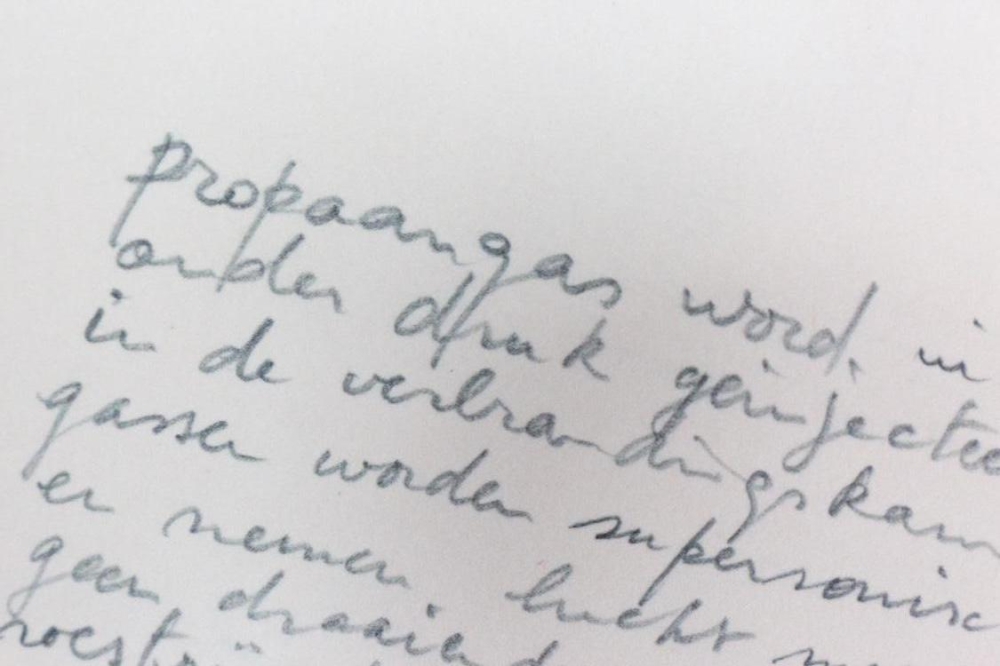 propaangas word. in
onder druk geinjectee
in de verbrandingskam
gassen worden supersonisc
en nemen lucht m
geen draaiend
roestrij